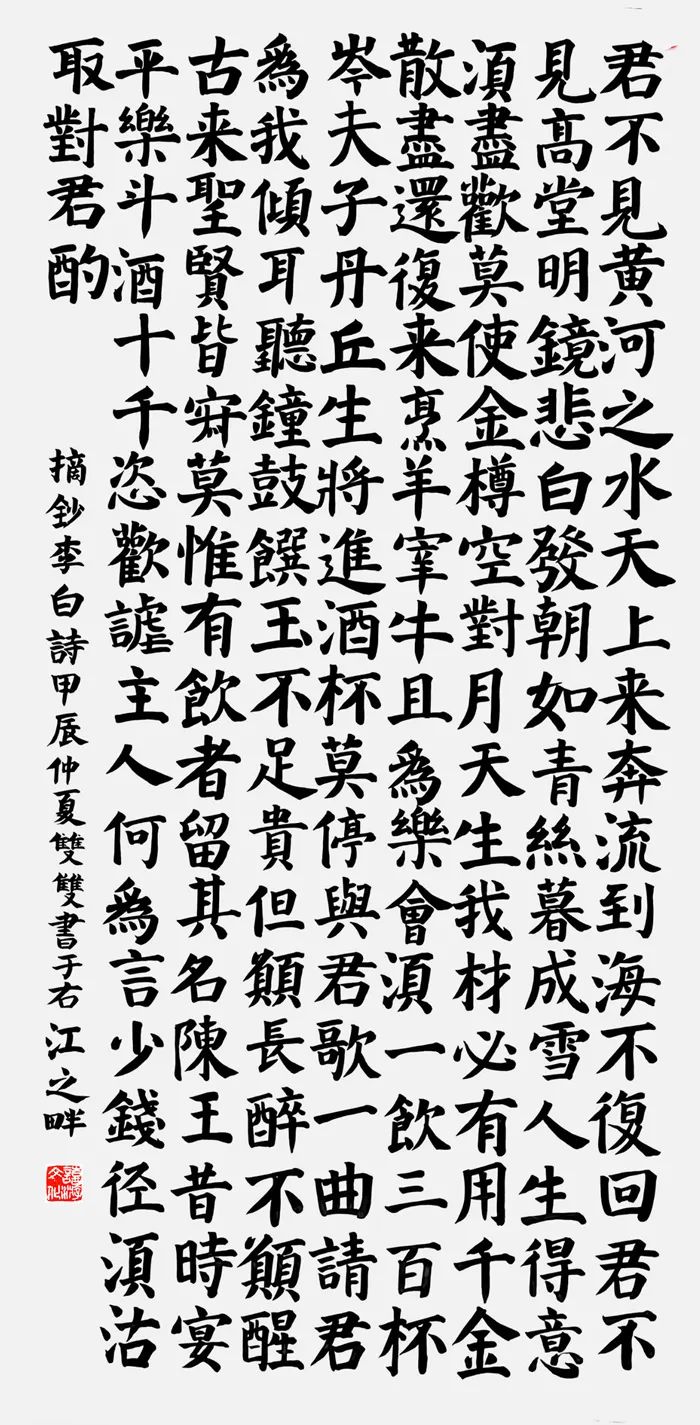 君不見黄河之水天上来奔流到海不復回君不
見高堂明鏡悲白發朝如青絲暮成雪人生得意
湏盡歡莫使金樽空對月天生我材必有用千金
散盡還復来烹羊宰牛且爲樂會湏一飲三百杯
岑夫子丹丘生將進酒杯莫停與君歌一曲請君
爲我傾耳聽鐘鼓饌玉不足貴但願長醉不願醒
古来聖賢皆寂莫惟有飲者留其名陳王昔時宴
平樂斗酒十千恣歡謔主人何爲言少錢径湏沽
取對君酌
摘鈔李白詩甲辰仲夏雙雙書于右江之畔